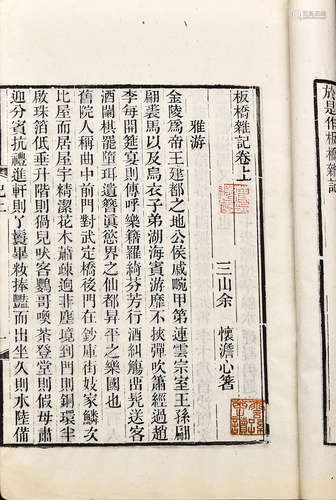 板橋雜記卷上
三山余 懷澹心著
雅游
金陵爲帝王建都之地公侯戚畹甲第連雲宗室王孫翩
翩裘馬以及烏衣子弟湖海賓游靡不挾彈吹簫經過趙
李每開筵宴則傳呼樂籍羅綺芬芳行酒糾觴留髡送客
酒闌棋罷墮珥遺簪眞慾界之仙都昇平之樂國也
舊院人稱曲中前門對武定橋後門在鈔庫街妓家鱗次
比屋而居屋宇精潔花木蕭疎迥非塵境到門則銅環半
啟珠箔低垂升階則猧兒吠客鸚哥喚茶登堂則假母肅
迎分賓抗禮進軒則丫鬟畢妝捧豔而出坐久則水陸備
於是作板橋雜記